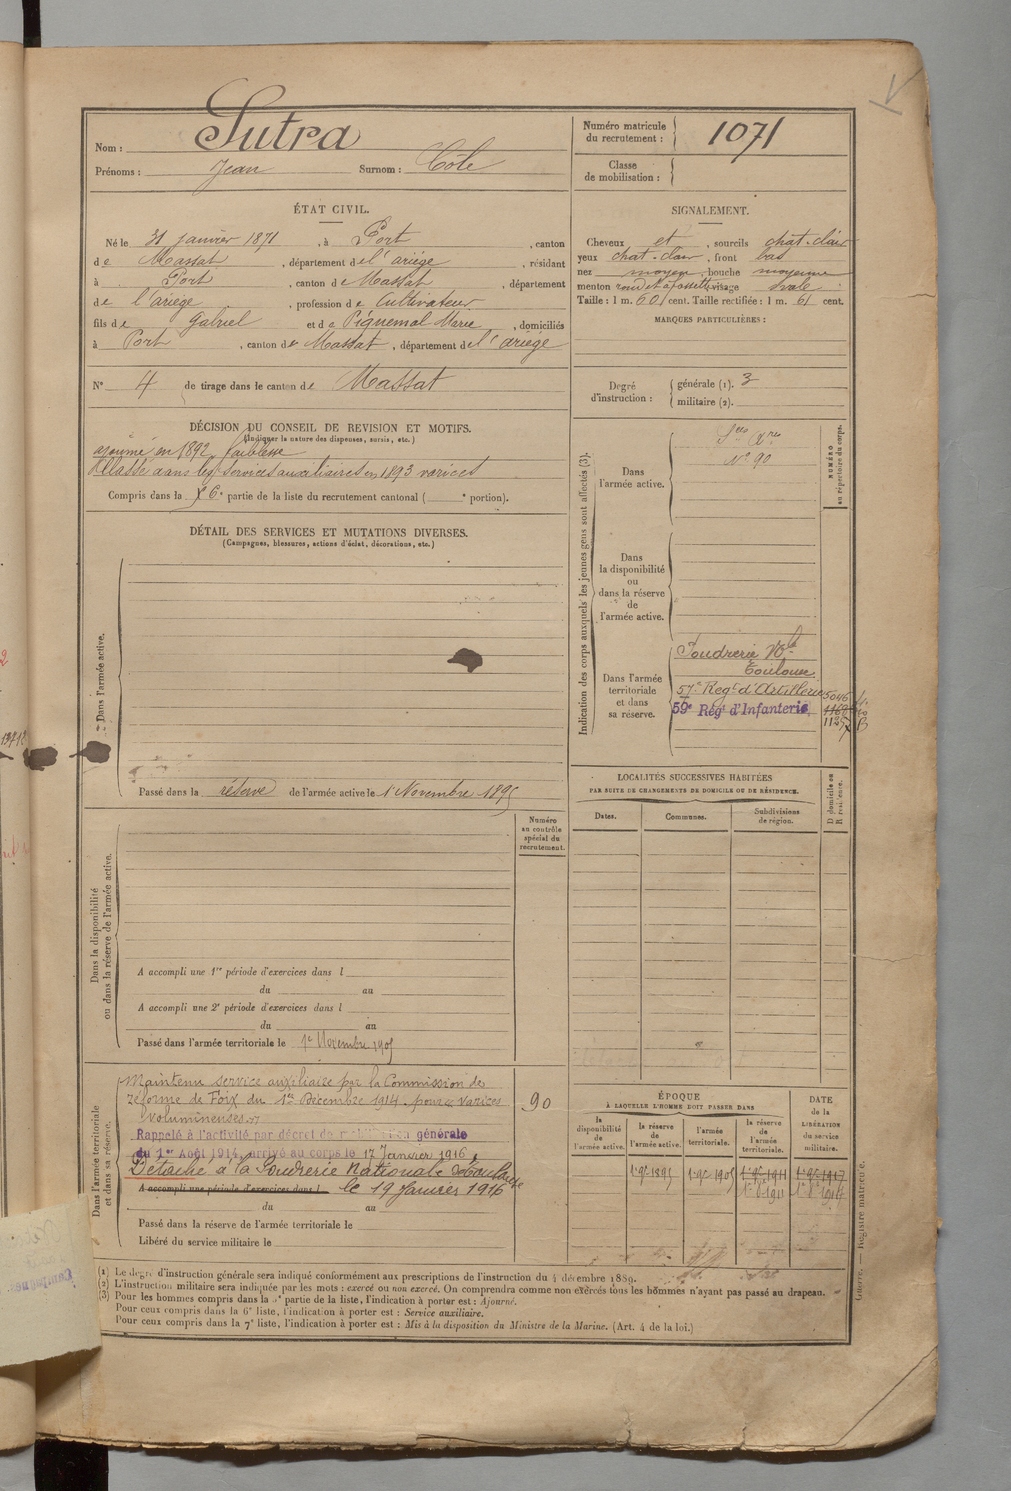 Nom : Sutra
Prénoms : Jean Surnom : Côte
Numéro matricule du recrutement : 1071
Classe de mobilisation :
ÉTAT CIVIL.
Né le 31 janvier 1871, à Port, canton
de Massat, département de l'ariège, résidant
à Port, canton de Massat, département
de l'ariège, profession de Cultivateur
fils de Gabriel et de Piquemal Marie, domiciliés
à Port, canton de Massat, département de l'ariège
N° 4 de tirage dans le canton de Massat
SIGNALEMENT.
Cheveux et, sourcils chat-clair
yeux chat-clair, front bas
nez moyen, bouche moyenne
menton rond et à fossette, visage ovale
Taille : 1 m. 60 cent. Taille rectifiée : 1 m. 61 cent.
MARQUES PARTICULIÈRES :
Degré d'instruction :
générale (1). 3
militaire (2).
DÉCISION DU CONSEIL DE REVISION ET MOTIFS.
(Indiquer la nature des dispenses, sursis, etc.)
ajourné en 1892, faiblesse
Classé dans les services auxiliaires en 1893 varices
Compris dans la 6e partie de la liste du recrutement cantonal ( e portion).
DÉTAIL DES SERVICES ET MUTATIONS DIVERSES.
(Campagnes, blessures, actions d'éclat, décorations, etc.)
Dans l'armée active.
Passé dans la réserve de l'armée active le 1er Novembre 1895
Indication des corps auxquels les jeunes gens sont affectés (3).
NUMÉRO au répertoire du corps.
Dans l'armée active.
Ses Ares
N° 90
Dans la disponibilité ou dans la réserve de l'armée active.
Dans l'armée territoriale et dans sa réserve.
Poudrerie Nle
Toulouse.
57e Regt d'Artillerie 5046
59e Regt d'Infanterie
LOCALITÉS SUCCESSIVES HABITÉES
PAR SUITE DE CHANGEMENTS DE DOMICILE OU DE RÉSIDENCE.
D domicile ou R résidence.
Dates. Communes. Subdivisions de région.
Numéro au contrôle spécial du recrutement.
Dans la disponibilité ou dans la réserve de l'armée active.
A accompli une 1re période d'exercices dans l
du au
A accompli une 2e période d'exercices dans l
du au
Passé dans l'armée territoriale le 1er Novembre 1905
Dans l'armée territoriale et dans sa réserve.
Maintenu service auxiliaire par la Commission de
réforme de Foix du 1er Décembre 1914 - pour varices
volumineuses
90
Rappelé à l'activité par décret de mobilisation générale
du 1er Août 1914, arrivé au corps le 17 Janvier 1916
Détaché à la Poudrerie Nationale de Toulouse
A accompli une période d'exercices dans l le 19 Janvier 1916
du au
Passé dans la réserve de l'armée territoriale le
Libéré du service militaire le
ÉPOQUE
À LAQUELLE L'HOMME DOIT PASSER DANS
la disponibilité de l'armée active. la réserve de l'armée active. l'armée territoriale. la réserve de l'armée territoriale.
DATE de la LIBÉRATION du service militaire.
1er 9bre 1895 1er 9bre 1905 1er 9bre 1911 1er 9bre 1917
(1) Le degré d'instruction générale sera indiqué conformément aux prescriptions de l'instruction du 4 décembre 1889.
(2) L'instruction militaire sera indiquée par les mots : exercé ou non exercé. On comprendra comme non exercés tous les hommes n'ayant pas passé au drapeau.
(3) Pour les hommes compris dans la 5e partie de la liste, l'indication à porter est : Ajourné.
Pour ceux compris dans la 6e liste, l'indication à porter est : Service auxiliaire.
Pour ceux compris dans la 7e liste, l'indication à porter est : Mis à la disposition du Ministre de la Marine. (Art. 4 de la loi.)
Guerre. — Registre matricule.